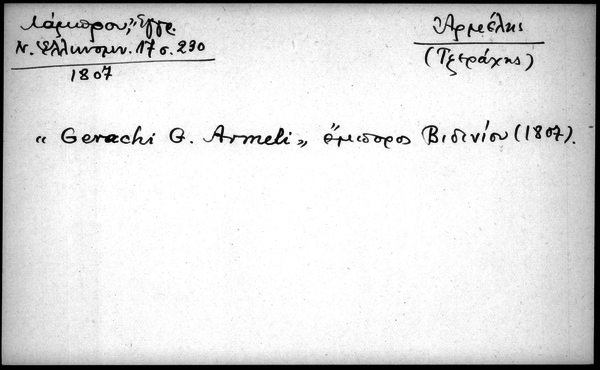 Λάμπρου, Ἔγγρ.
Ν. Ἑλληνομν. 17 σ. 230
1807
Ἀρμέλης
(Τζεράχης)
« Gerachi G. Armeli », ἔμπορος Βιδινίου (1807).